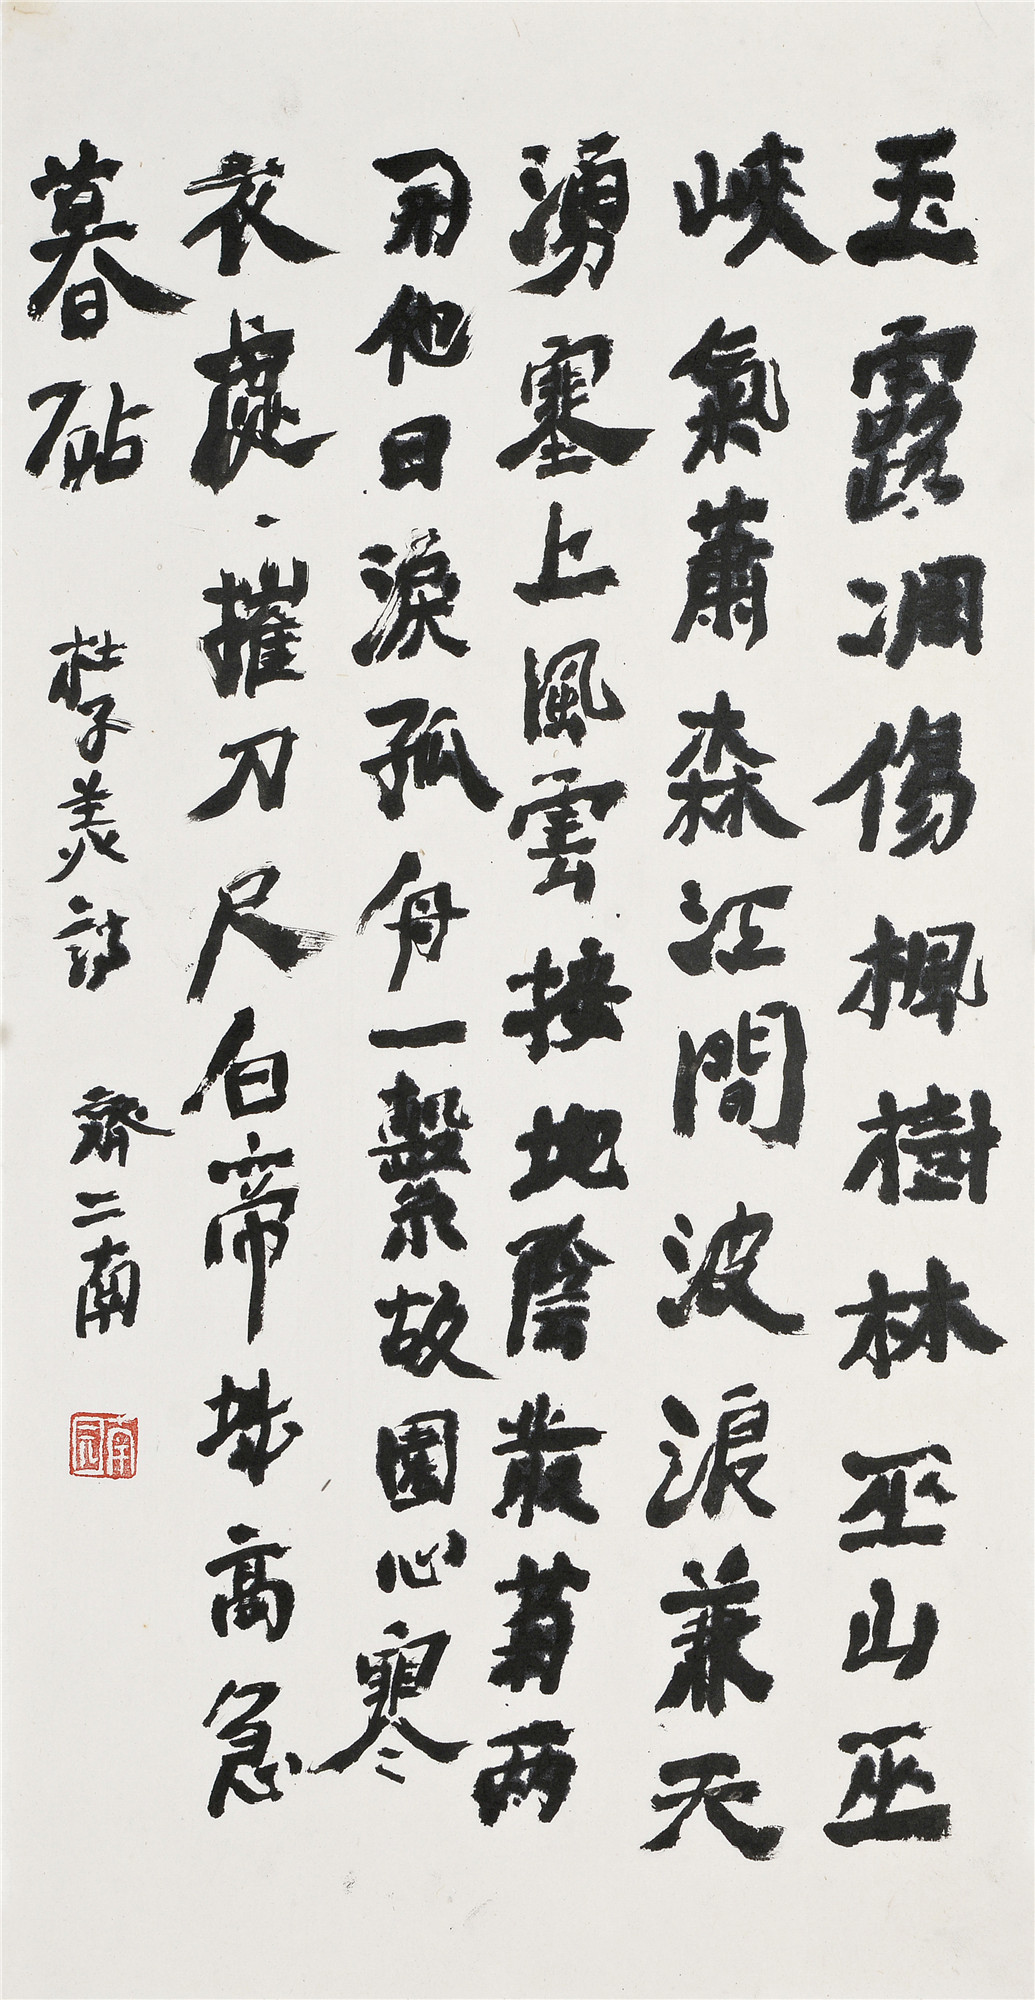 玉露凋傷楓樹林巫山巫
峽氣蕭森江間波浪兼天
湧塞上風雲接地陰叢菊兩
開他日淚孤舟一繫故園心寒
衣處〻摧刀尺白帝城高急
暮砧
杜子美詩
齊二南